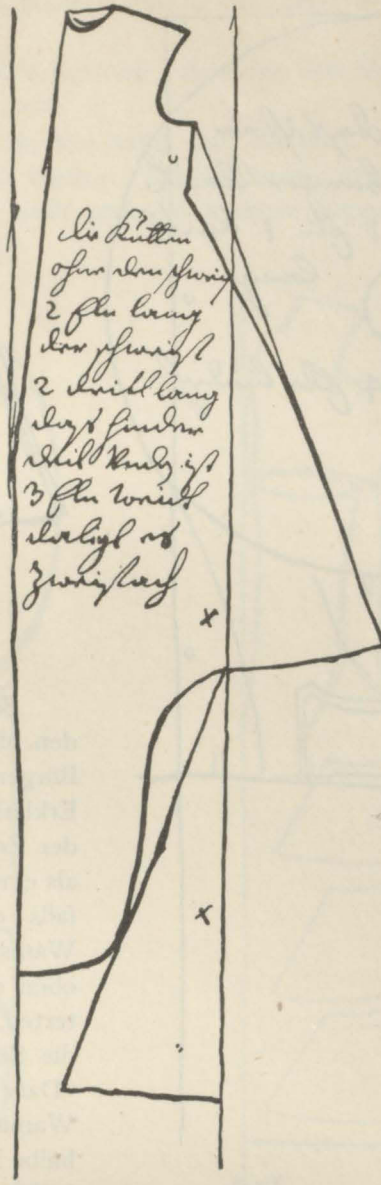 die Kutten
ohne den schweif
2 Eln lang
der schweif
2 dritl lang
das hinder
deil Unden ist
3 Eln weidt
daligt es
zweifach
x
x